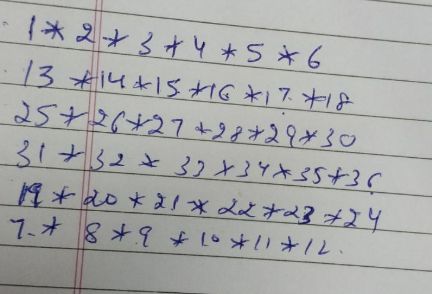 1 * 2 * 3 * 4 * 5 * 6
13 * 14 * 15 * 16 * 17 * 18
25 * 26 * 27 * 28 * 29 * 30
31 * 32 * 33 * 34 * 35 * 36
19 * 20 * 21 * 22 * 23 * 24
7 * 8 * 9 * 10 * 11 * 12